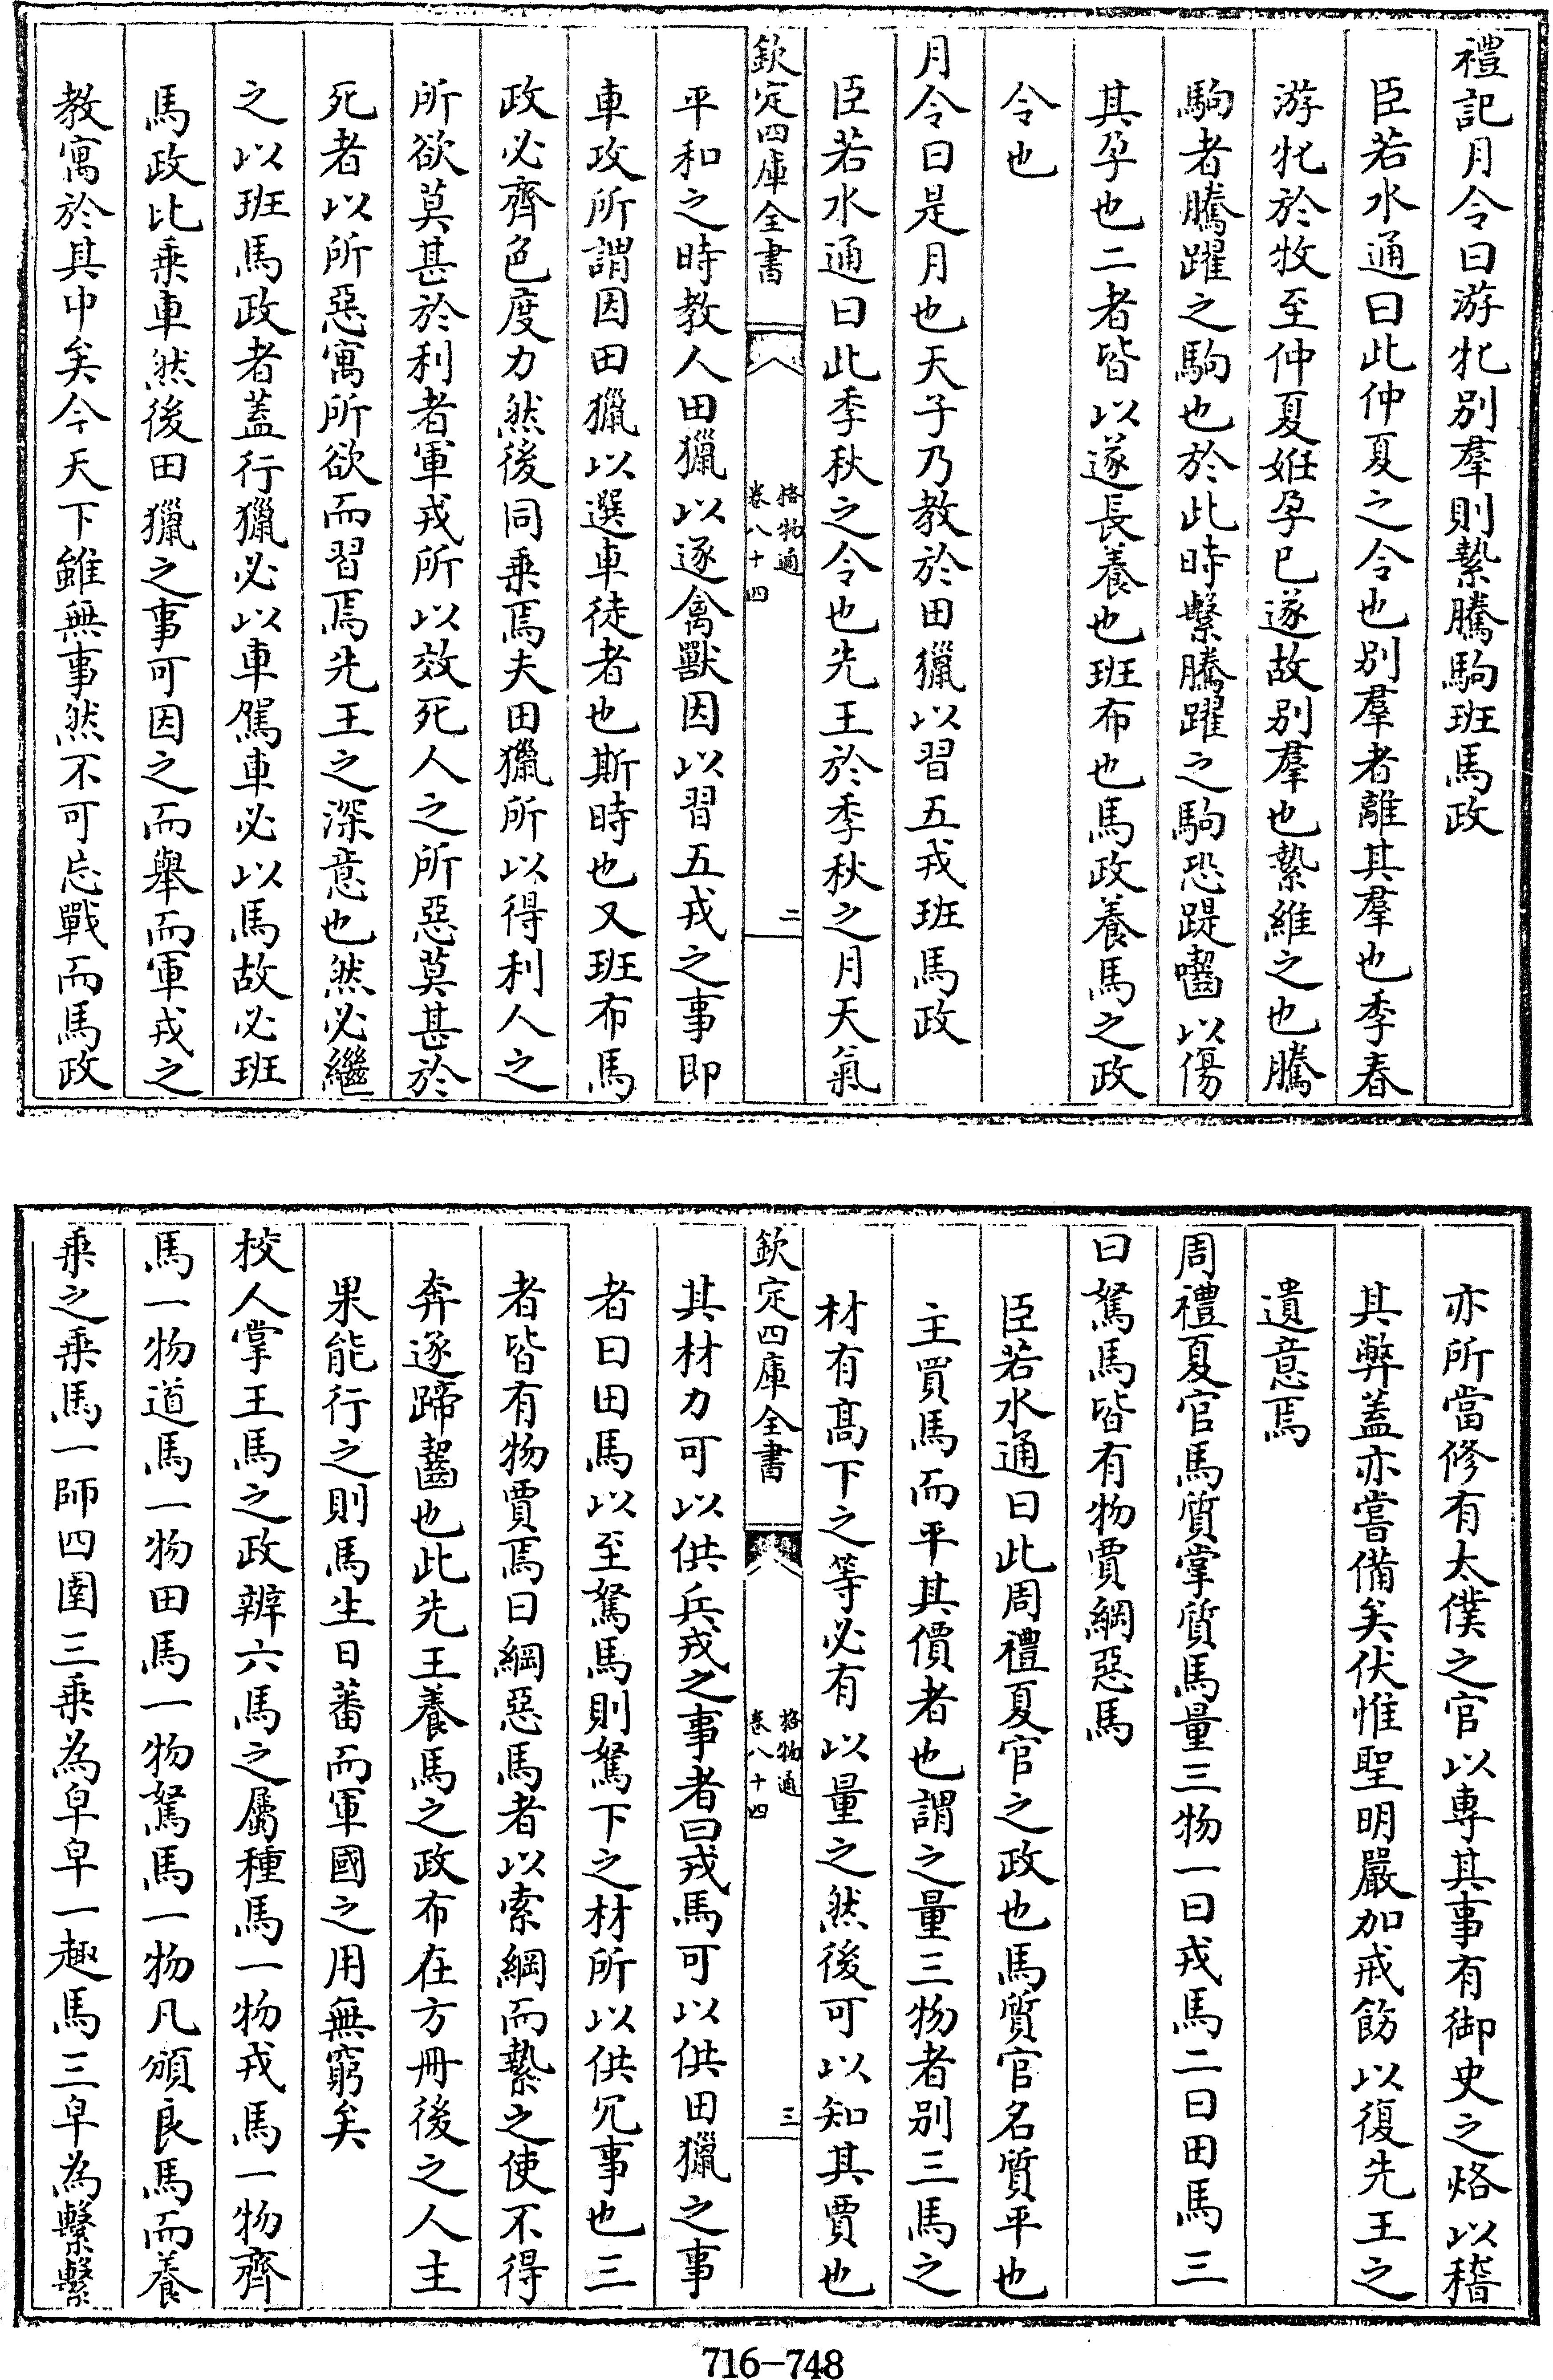 禮記月令曰游牝别羣則縶騰駒班馬政
臣若水通曰此仲夏之令也别羣者離其羣也季春
游牝於牧至仲夏姙孕已遂故别羣也縶維之也騰
駒者騰躍之駒也於此時繫騰躍之駒恐踶囓以傷
其孕也二者皆以遂長養也班布也馬政養馬之政
令也
月令曰是月也天子乃教於田獵以習五戎班馬政
臣若水通曰此季秋之令也先王於季秋之月天氣
欽定四庫全書
格物通
卷八十四
二
平和之時教人田獵以逐禽獸因以習五戎之事即
車攻所謂因田獵以選車徒者也斯時也又班布馬
政必齊色度力然後同乗焉夫田獵所以得利人之
所欲莫甚於利者軍戎所以效死人之所惡莫甚於
死者以所惡寓所欲而習焉先王之深意也然必繼
之以班馬政者蓋行獵必以車駕車必以馬故必班
馬政比乗車然後田獵之事可因之而舉而軍戎之
教寓於其中矣今天下雖無事然不可忘戰而馬政
亦所當修有太僕之官以專其事有御史之烙以稽
其弊蓋亦嘗備矣伏惟聖明嚴加戒飭以復先王之
遺意焉
周禮夏官馬質掌質馬量三物一曰戎馬二曰田馬三
曰駑馬皆有物賈綱惡馬
臣若水通曰此周禮夏官之政也馬質官名質平也
主買馬而平其價者也謂之量三物者别三馬之
材有髙下之等必有以量之然後可以知其賈也
欽定四庫全書
格物通
卷八十四
三
其材力可以供兵戎之事者曰戎馬可以供田獵之事
者曰田馬以至駑馬則駑下之材所以供冗事也三
者皆有物賈焉曰綱惡馬者以索綱而縶之使不得
奔逐蹄齧也此先王養馬之政布在方冊後之人主
果能行之則馬生日蕃而軍國之用無窮矣
校人掌王馬之政辨六馬之屬種馬一物戎馬一物齊
馬一物道馬一物田馬一物駑馬一物凡頒良馬而養
乗之乗馬一師四圉三乗為皁皁一趣馬三皁為繫繫
716-748